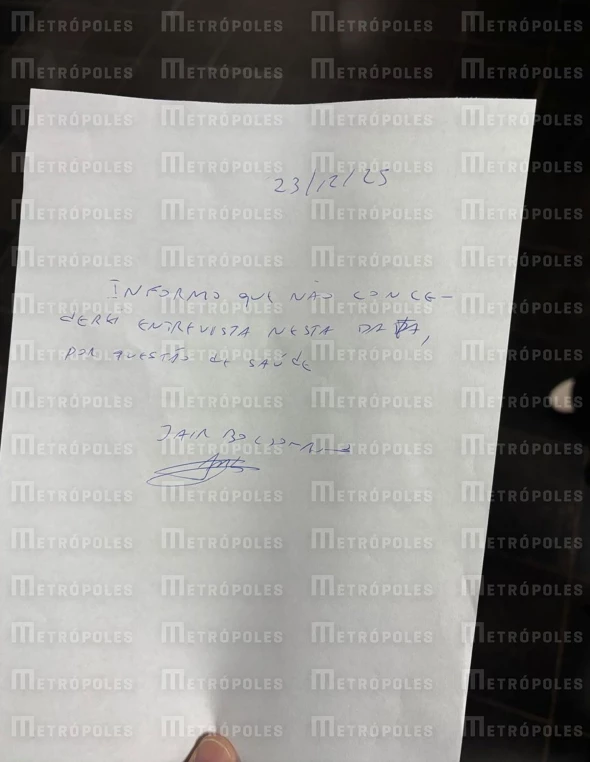 METRÓPOLES
23/12/25
INFORMO QUE NÃO CONCE-
DEREI ENTREVISTA NESTA DATA,
POR QUESTÃO DE SAÚDE
JAIR BOLSONARO